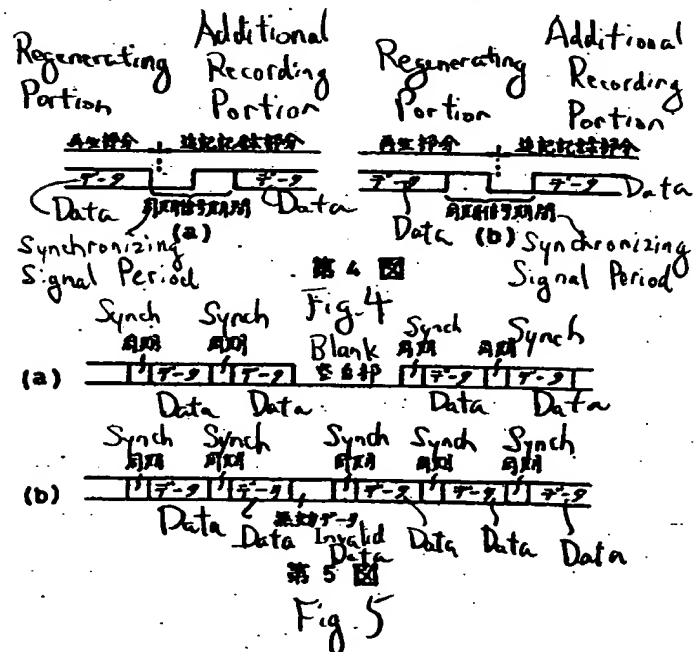 Regenerating Portion
Additional Recording Portion
Regenerating Portion
Additional Recording Portion
再生部分 追記記録部分
再生部分 追記記録部分
データ データ
データ データ
Data Data
Data Data
同期信号期間
同期信号期間
(a)
(b)
Synchronizing Signal Period
Synchronizing Signal Period
第 4 図
Fig. 4
Synch Synch Synch Synch
同期 同期 Blank 同期 同期
空白部
(a) データ データ データ データ
Data Data Data Data
Synch Synch Synch Synch Synch
同期 同期 同期 同期 同期
(b) データ データ データ データ データ
無効データ
Data Data Invalid Data Data Data Data
第 5 図
Fig. 5